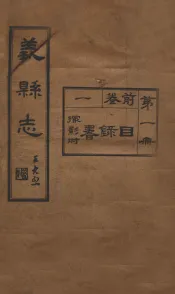 第一冊
前卷一
目錄書
義縣志